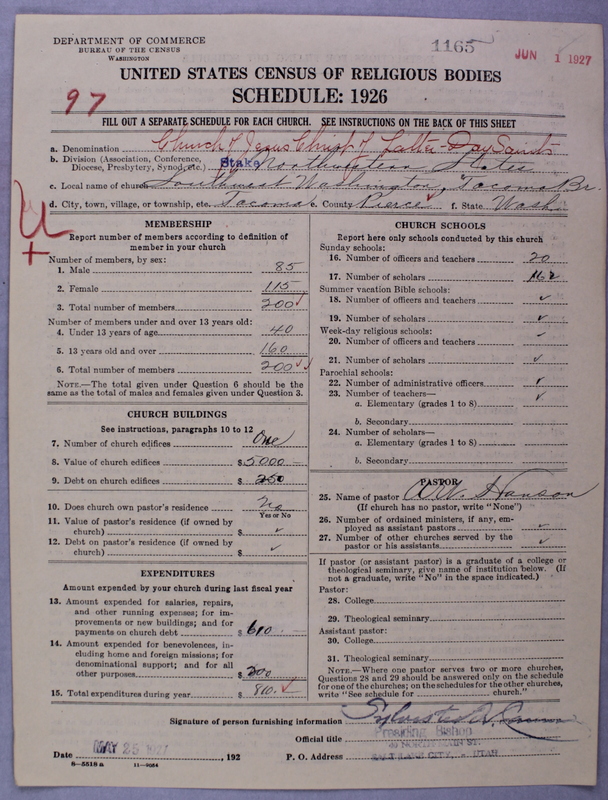 DEPARTMENT OF COMMERCE
BUREAU OF THE CENSUS
WASHINGTON
1165
JUN 1 1927
UNITED STATES CENSUS OF RELIGIOUS BODIES
SCHEDULE: 1926
97
FILL OUT A SEPARATE SCHEDULE FOR EACH CHURCH. SEE INSTRUCTIONS ON THE BACK OF THIS SHEET
a. Denomination Church of Jesus Christ of Latter-Day Saints
b. Division (Association, Conference, Diocese, Presbytery, Synod, etc.) Stake Northwestern States
c. Local name of church Southwest Washington, Tacoma Br.
d. City, town, village, or township, etc. Tacoma e. County Pierce f. State Wash
MEMBERSHIP
Report number of members according to definition of
member in your church
Number of members, by sex:
1. Male 85
2. Female 115
3. Total number of members 200
Number of members under and over 13 years old:
4. Under 13 years of age 40
5. 13 years old and over 160
6. Total number of members 200
NOTE.—The total given under Question 6 should be the
same as the total of males and females given under Question 3.
CHURCH BUILDINGS
See instructions, paragraphs 10 to 12
7. Number of church edifices One
8. Value of church edifices $5000
9. Debt on church edifices $250
10. Does church own pastor's residence No
Yes or No
11. Value of pastor's residence (if owned by
church) $
12. Debt on pastor's residence (if owned by
church) $
EXPENDITURES
Amount expended by your church during last fiscal year
13. Amount expended for salaries, repairs,
and other running expenses; for im-
provements or new buildings; and for
payments on church debt $610
14. Amount expended for benevolences, in-
cluding home and foreign missions; for
denominational support; and for all
other purposes $200
15. Total expenditures during year $810.
CHURCH SCHOOLS
Report here only schools conducted by this church
Sunday schools:
16. Number of officers and teachers 20
17. Number of scholars 162
Summer vacation Bible schools:
18. Number of officers and teachers
19. Number of scholars
Week-day religious schools:
20. Number of officers and teachers
21. Number of scholars
Parochial schools:
22. Number of administrative officers
23. Number of teachers—
a. Elementary (grades 1 to 8)
b. Secondary
24. Number of scholars—
a. Elementary (grades 1 to 8)
b. Secondary
PASTOR
25. Name of pastor Hanson
(If church has no pastor, write "None")
26. Number of ordained ministers, if any, em-
ployed as assistant pastors
27. Number of other churches served by the
pastor or his assistants
If pastor (or assistant pastor) is a graduate of a college or
theological seminary, give name of institution below. (If
not a graduate, write "No" in the space indicated.)
Pastor:
28. College
29. Theological seminary
Assistant pastor:
30. College
31. Theological seminary
NOTE.—Where one pastor serves two or more churches,
Questions 28 and 29 should be answered only on the schedule
for one of the churches; on the schedules for the other churches,
write "See schedule for church."
Signature of person furnishing information Sylvester Q. Cannon
Official title Presiding Bishop
40 NORTH MAIN ST.
Date MAY 25 1927, 192 P. O. Address SALT LAKE CITY, UTAH
8—5518 a 11—9084